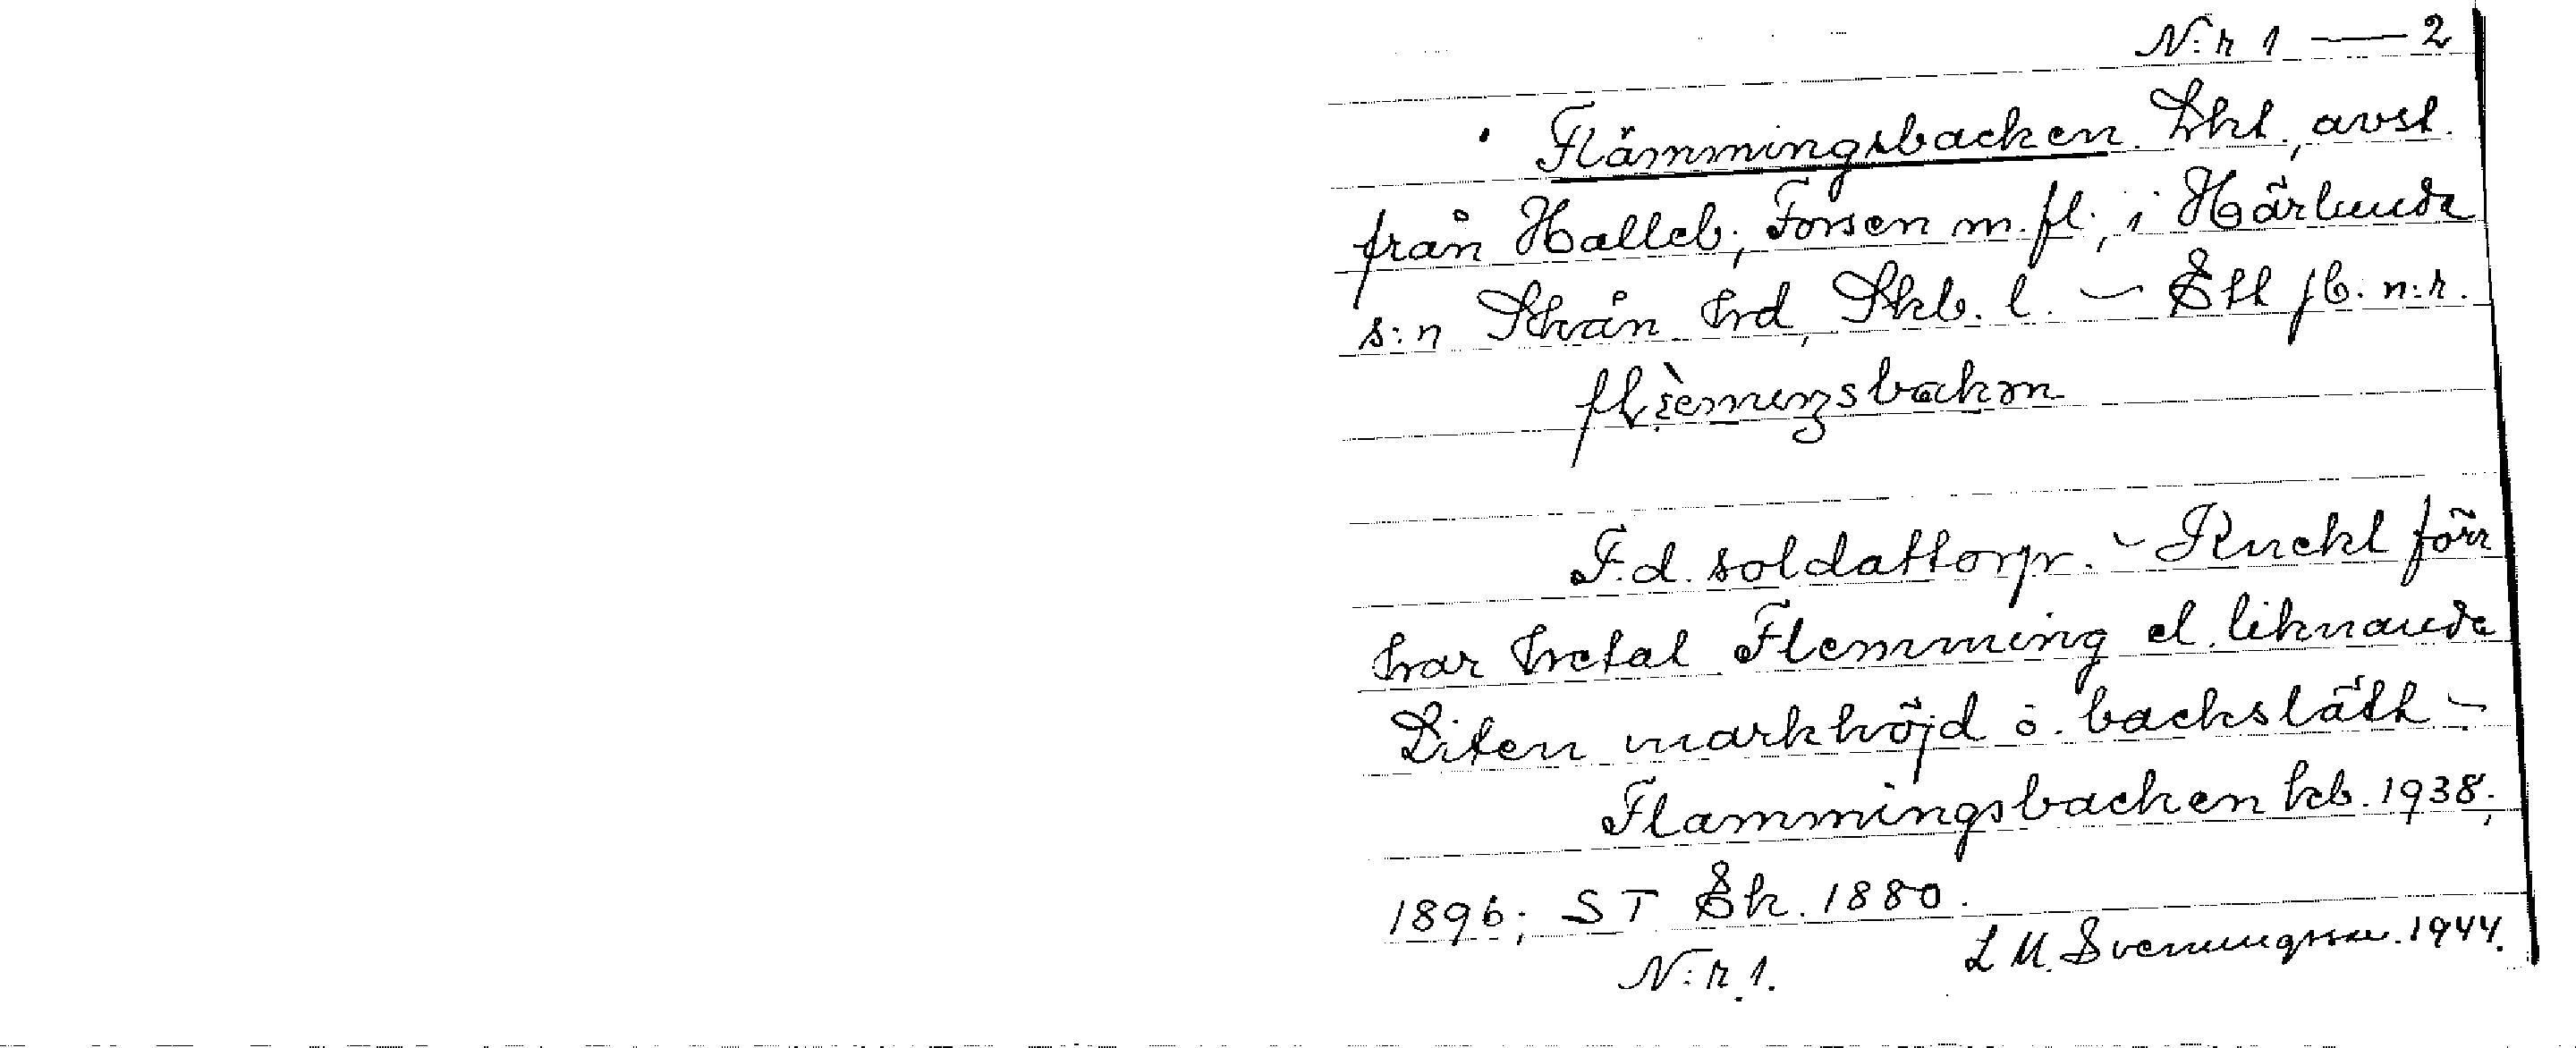 N:r 1 — 2
Flämmingsbacken. Lht, avst.
från Halleb; Forsen m.fl., i Härlunda
s:n Skån hrd, Skb. l. – Ett jb. n:r.
F.d. soldattorp. – Knekt förr
har hetat Flemming el. liknande
Liten markhöjd o. backslätt –
Flammingsbacken kb. 1938;
1896; ST Sk. 1880.
N:r 1. L M. Svenningsson. 1944.